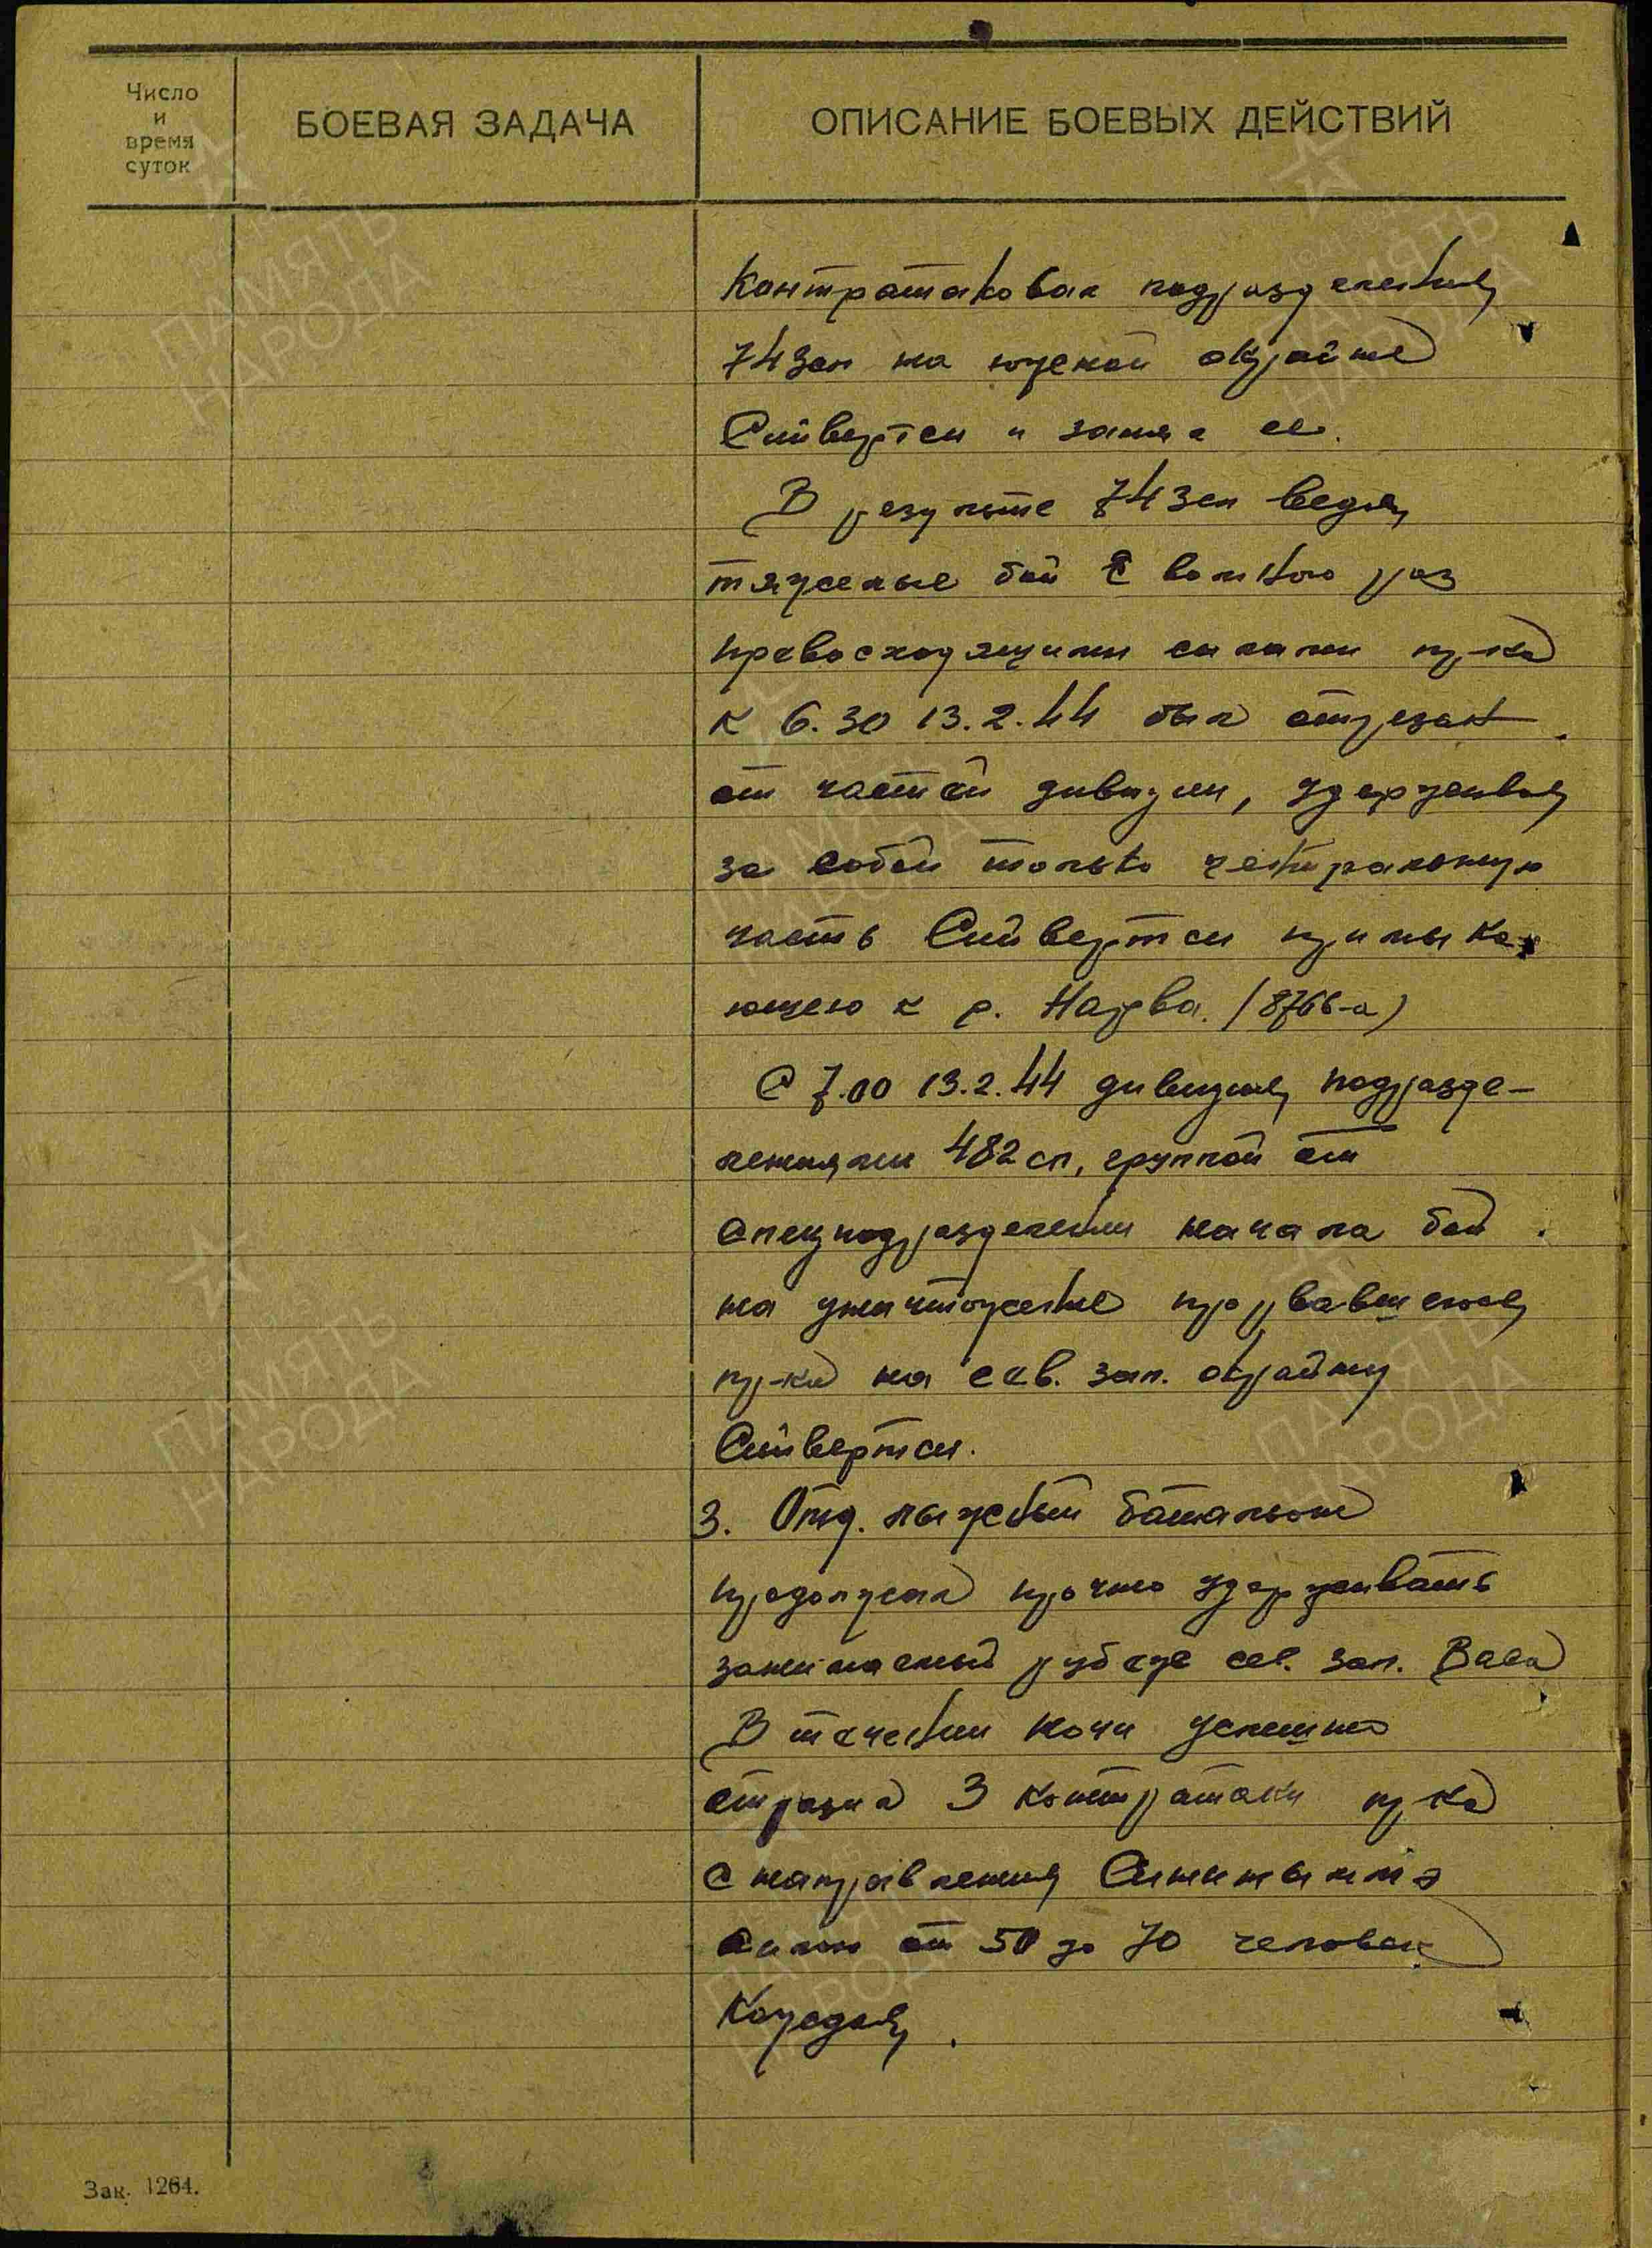 Число
и
время
суток
БОЕВАЯ ЗАДАЧА
ОПИСАНИЕ БОЕВЫХ ДЕЙСТВИЙ
Контратаковал подразделения
743сп на южной окраине
Сийвертси и занял ее.
В результате 743сп ведя
тяжелые бои с
превосходящими силами пр-ка
к 6.30 13.2.44 был отрезан
от частей дивизии, удерживая
за собой только центральную
часть Сийвертси примыка
ющею к р. Нарва. (8766-а)
С 7.00 13.2.44 дивизия, подразде-
лениями 482 сп, группой от
спецподразделений начала бой
на уничтожение прорвавшегося
пр-ка на сев. зап. окраину
Сийвертси.
3. Отд. лыжный батальон
продолжал прочно удерживать
занимаемый рубеж сев. зап. Васа
В течении ночи успешно
отразил 3 контратаки пр-ка
с направления
силою от 50 до 70 человек
каждая.
Зак. 1264.
ПАМЯТЬ
НАРОДА
ПАМЯТЬ
НАРОДА
ПАМЯТЬ
НАРОДА
ПАМЯТЬ
НАРОДА
ПАМЯТЬ
НАРОДА
ПАМЯТЬ
НАРОДА